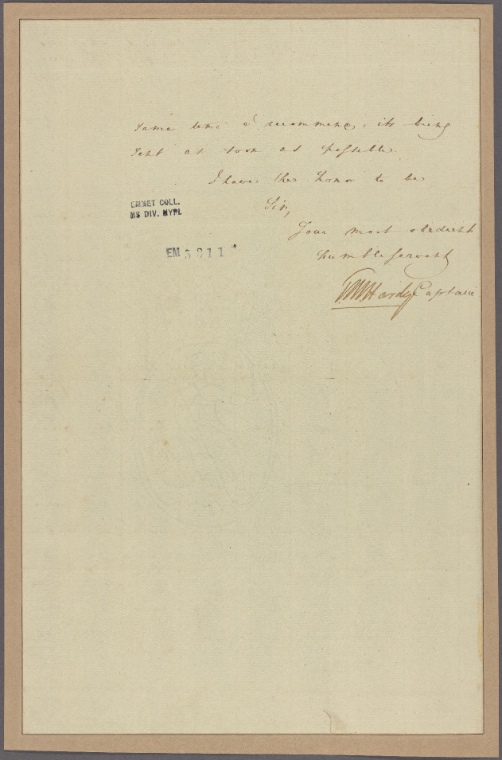 same time I recommend, its being
sent as soon as possible.
I have the honor to be
Sir,
Your most obedient
humble servant
T.M. Hardy Captain
EMMET COLL.
MS DIV. NYPL
EM 3811